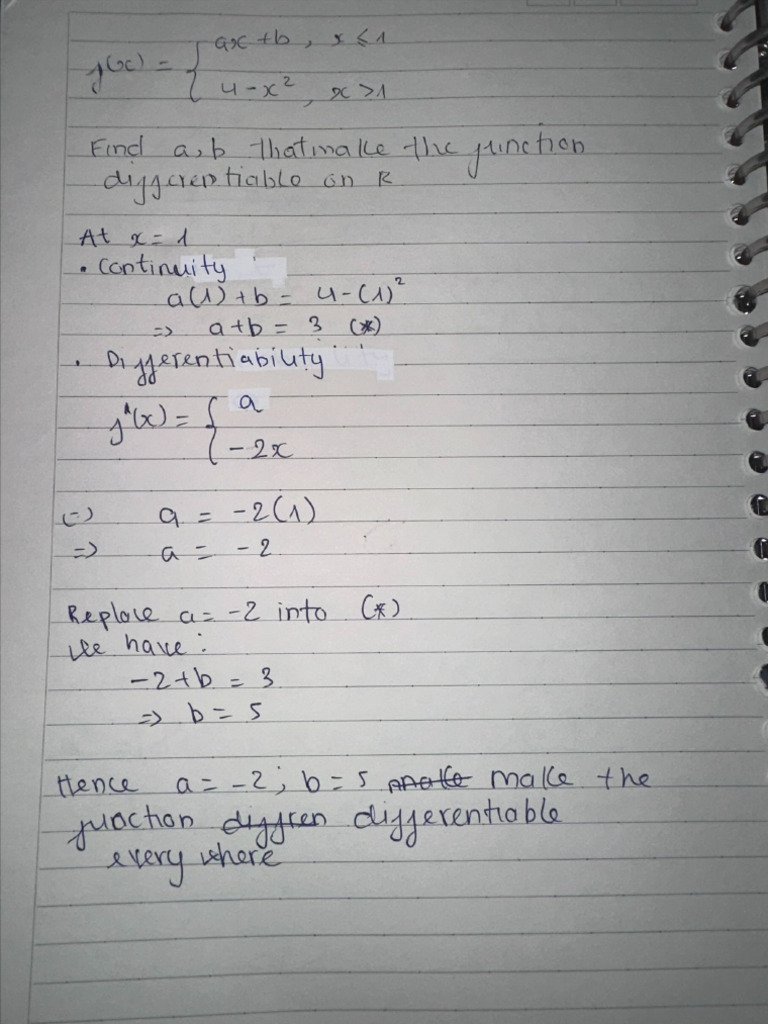 f(x) = { ax + b , x ≤ 1
4 - x² , x > 1
Find a, b that make the function
differentiable on R
At x = 1
• Continuity
a(1) + b = 4 - (1)²
=> a + b = 3 (*)
• Differentiability
f'(x) = { a
-2x
(=) a = -2(1)
=> a = -2
Replace a = -2 into (*)
We have :
-2 + b = 3
=> b = 5
Hence a = -2 ; b = 5 make the
function differentiable
every where